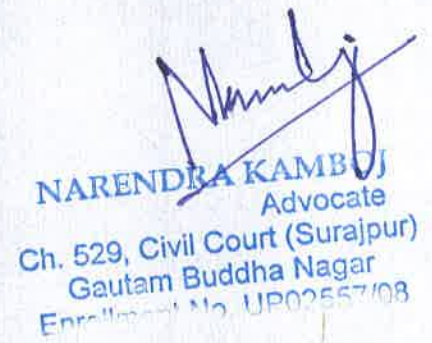 NARENDRA KAMBOJ
Advocate
Ch. 529, Civil Court (Surajpur)
Gautam Buddha Nagar
Enrollment No. UP02557/08